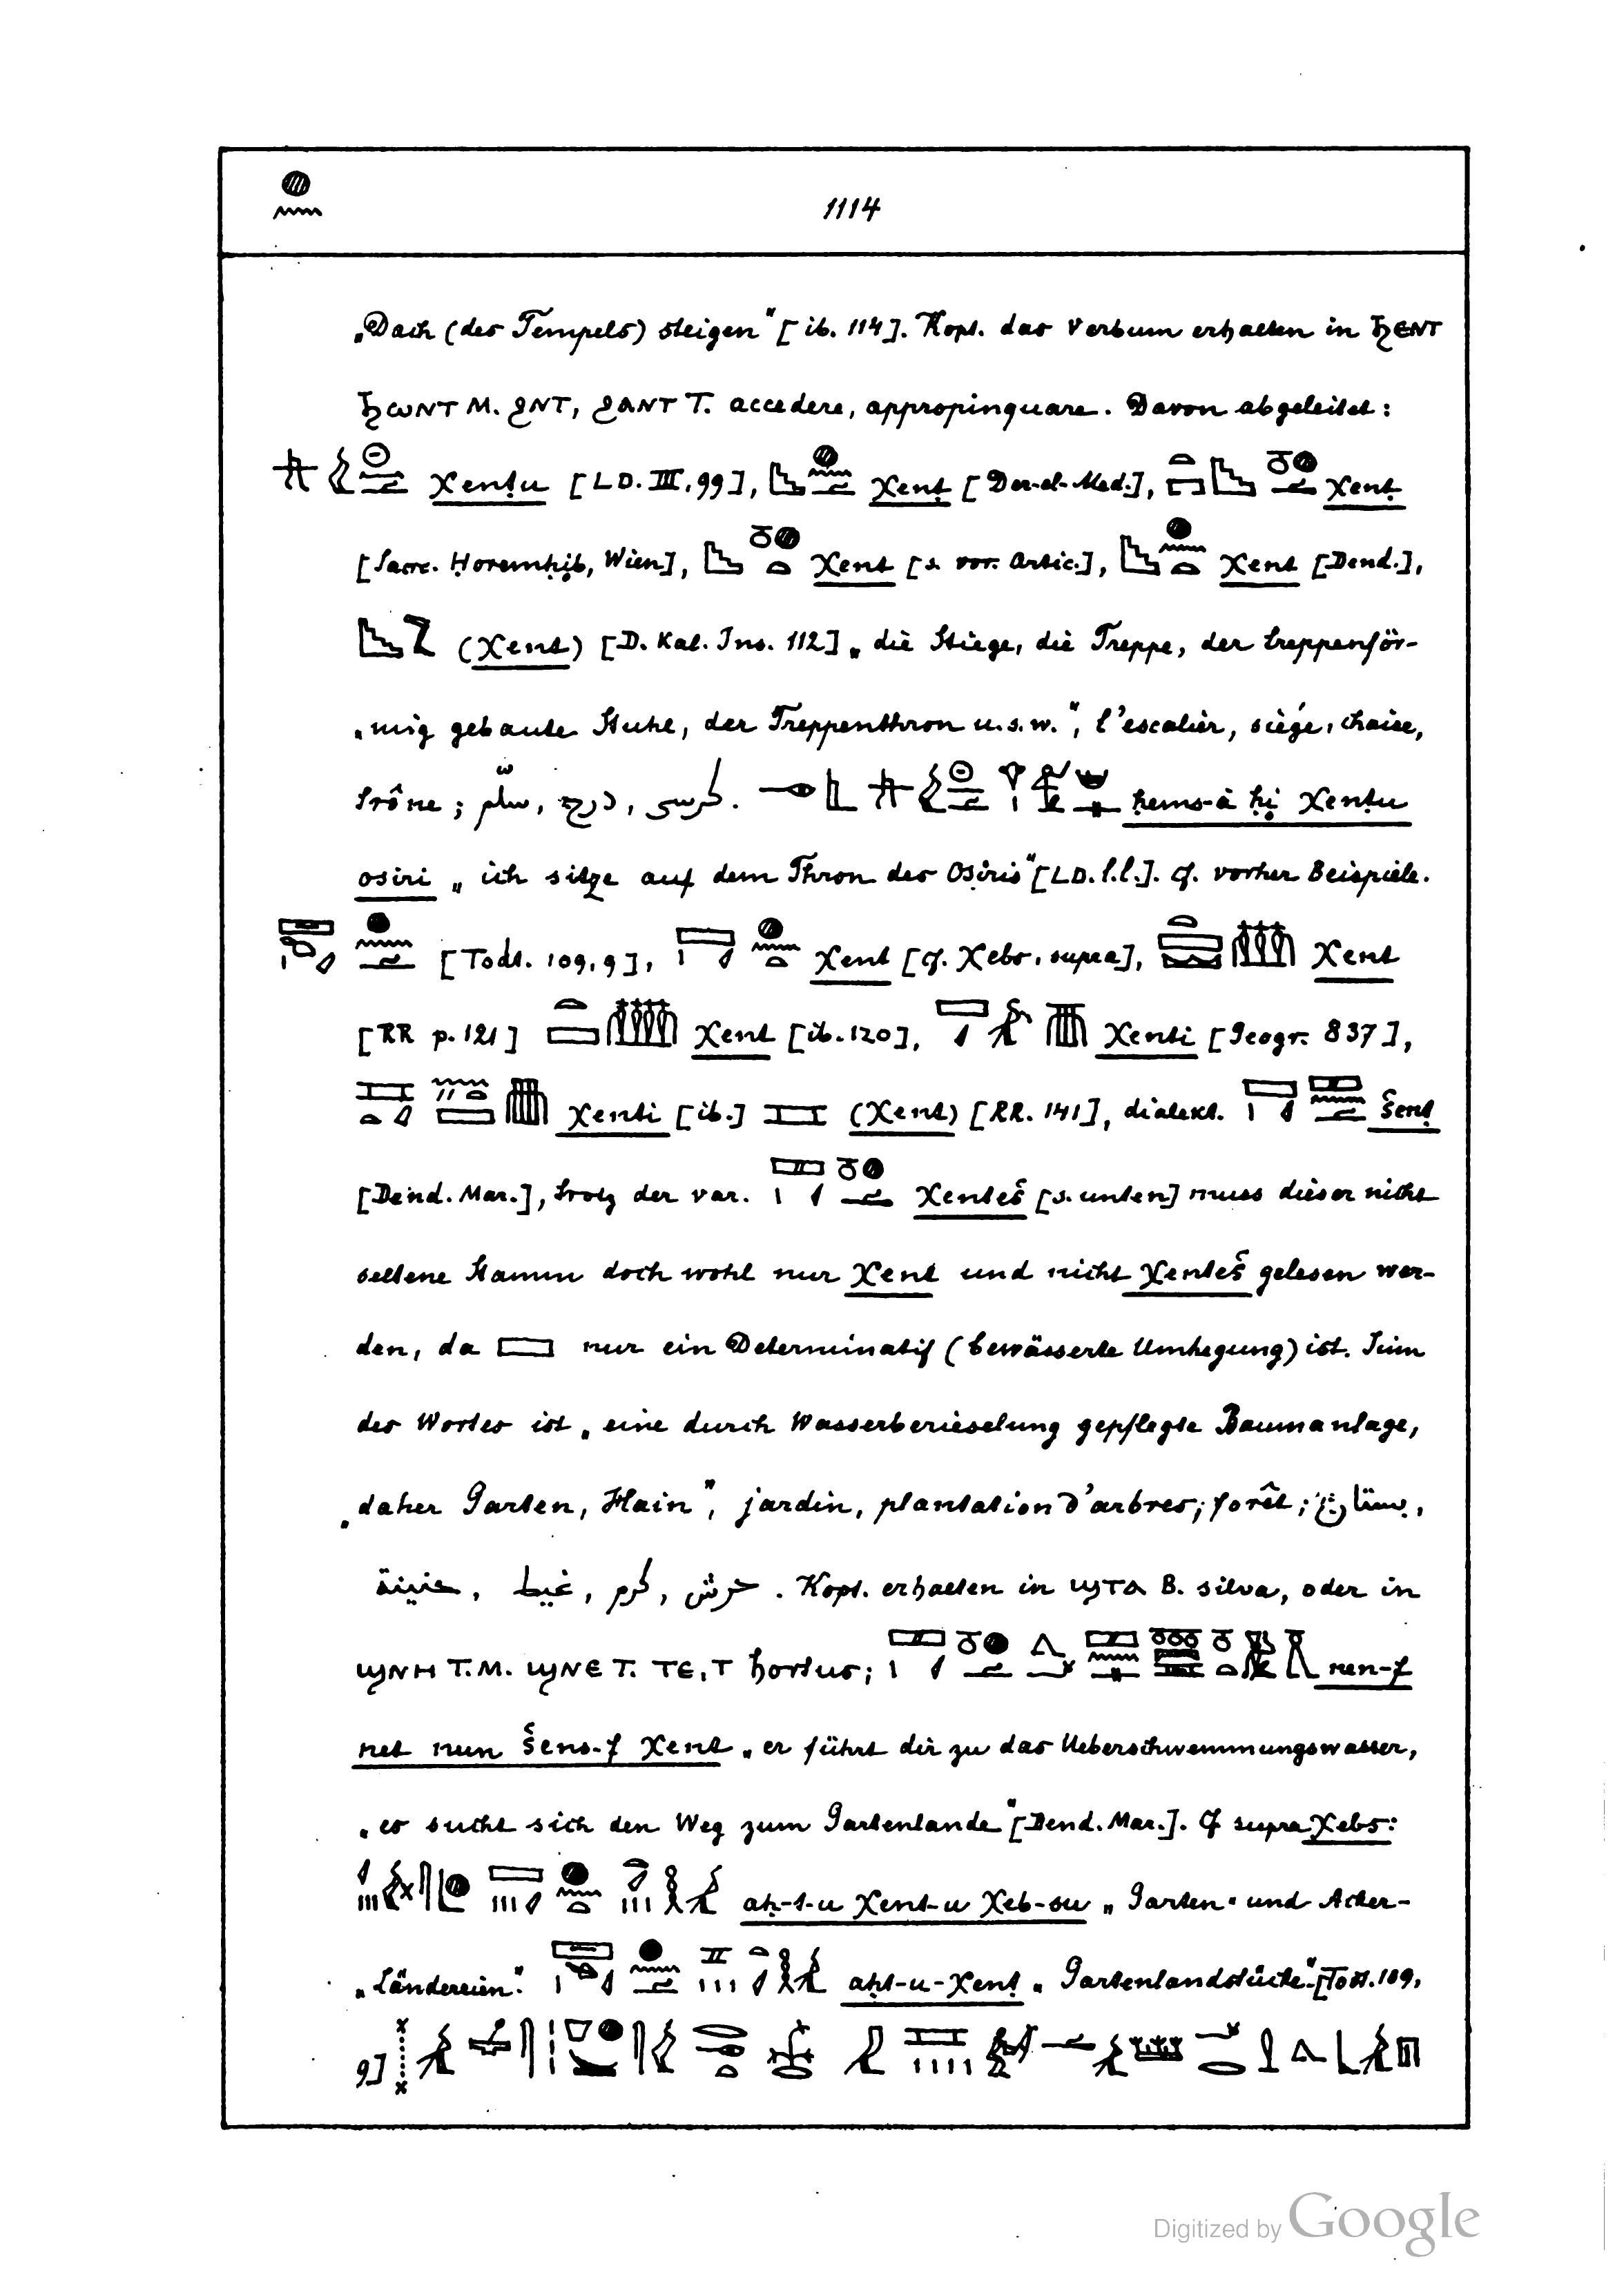 1114
„Dach (des Tempels) steigen" [ib. 114]. Kopt. das Verbum erhalten in ϦⲈⲚⲦ
ϦⲰⲚⲦ M. ϨⲚⲦ, ϨⲀⲚⲦ T. accedere, appropinquare. Davon abgeleitet:
χenṭu [LD. III, 99], χenṭ [Der-el-Med.], χenṭ
[Sarc. Ḥoremḥib, Wien], χent [s. vor. Artic.], χent [Dend.],
(χent) [D. Kal. Ins. 112] „die Stiege, die Treppe, der treppenför-
„mig gebaute Stuhl, der Treppenthron u.s.w.", l'escalier, siége, chaise,
trône; سلّم, درج, كرسى. ḥems-à ḥi χenṭu
osiri „ich sitze auf dem Thron des Osiris" [LD. l.l.]. cf. vorher Beispiele.
[Todt. 109, 9], χent [cf. χebs, supra], χent
[RR p. 121] χent [ib. 120], χenti [Geogr. 837],
χenti [ib.] (χent) [RR. 141], dialekt. šenṭ
[Dend. Mar.], trotz der var. χenteš [s. unten] muss dieser nicht
seltene Stamm doch wohl nur χent und nicht χenteš gelesen wer-
den, da nur ein Determinatif (bewässerte Umhegung) ist. Sinn
des Wortes ist „eine durch Wasserberieselung gepflegte Baumanlage,
„daher Garten, Hain", jardin, plantation d'arbres; forêt; بستان,
حرش, كرم, غيط, جنينة. Kopt. erhalten in ϢⲦⲀ B. silva, oder in
ϢⲚⲎ T.M. ϢⲚⲈ T. ⲦⲈ, Ⲧ hortus; nen-f
net nun šens-f χent „er führt dir zu das Ueberschwemmungswasser,
„es sucht sich den Weg zum Gartenlande" [Dend. Mar.]. Cf supra χebs:
aḥ-t-u χent-u χeb-su „Garten- und Acker-
„Ländereien". aḥt-u-χenṭ „Gartenlandstücke" [Todt. 109,
9]
Digitized by Google